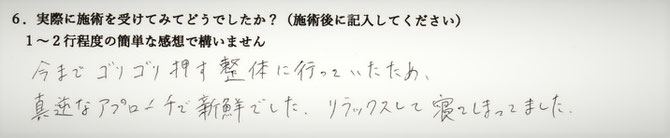 6．実際に施術を受けてみてどうでしたか？（施術後に記入してください）
1～2行程度の簡単な感想で構いません
今まで ゴリゴリ 押す 整体に行っていたため、
真逆なアプローチで新鮮でした。リラックスして寝てしまってました。